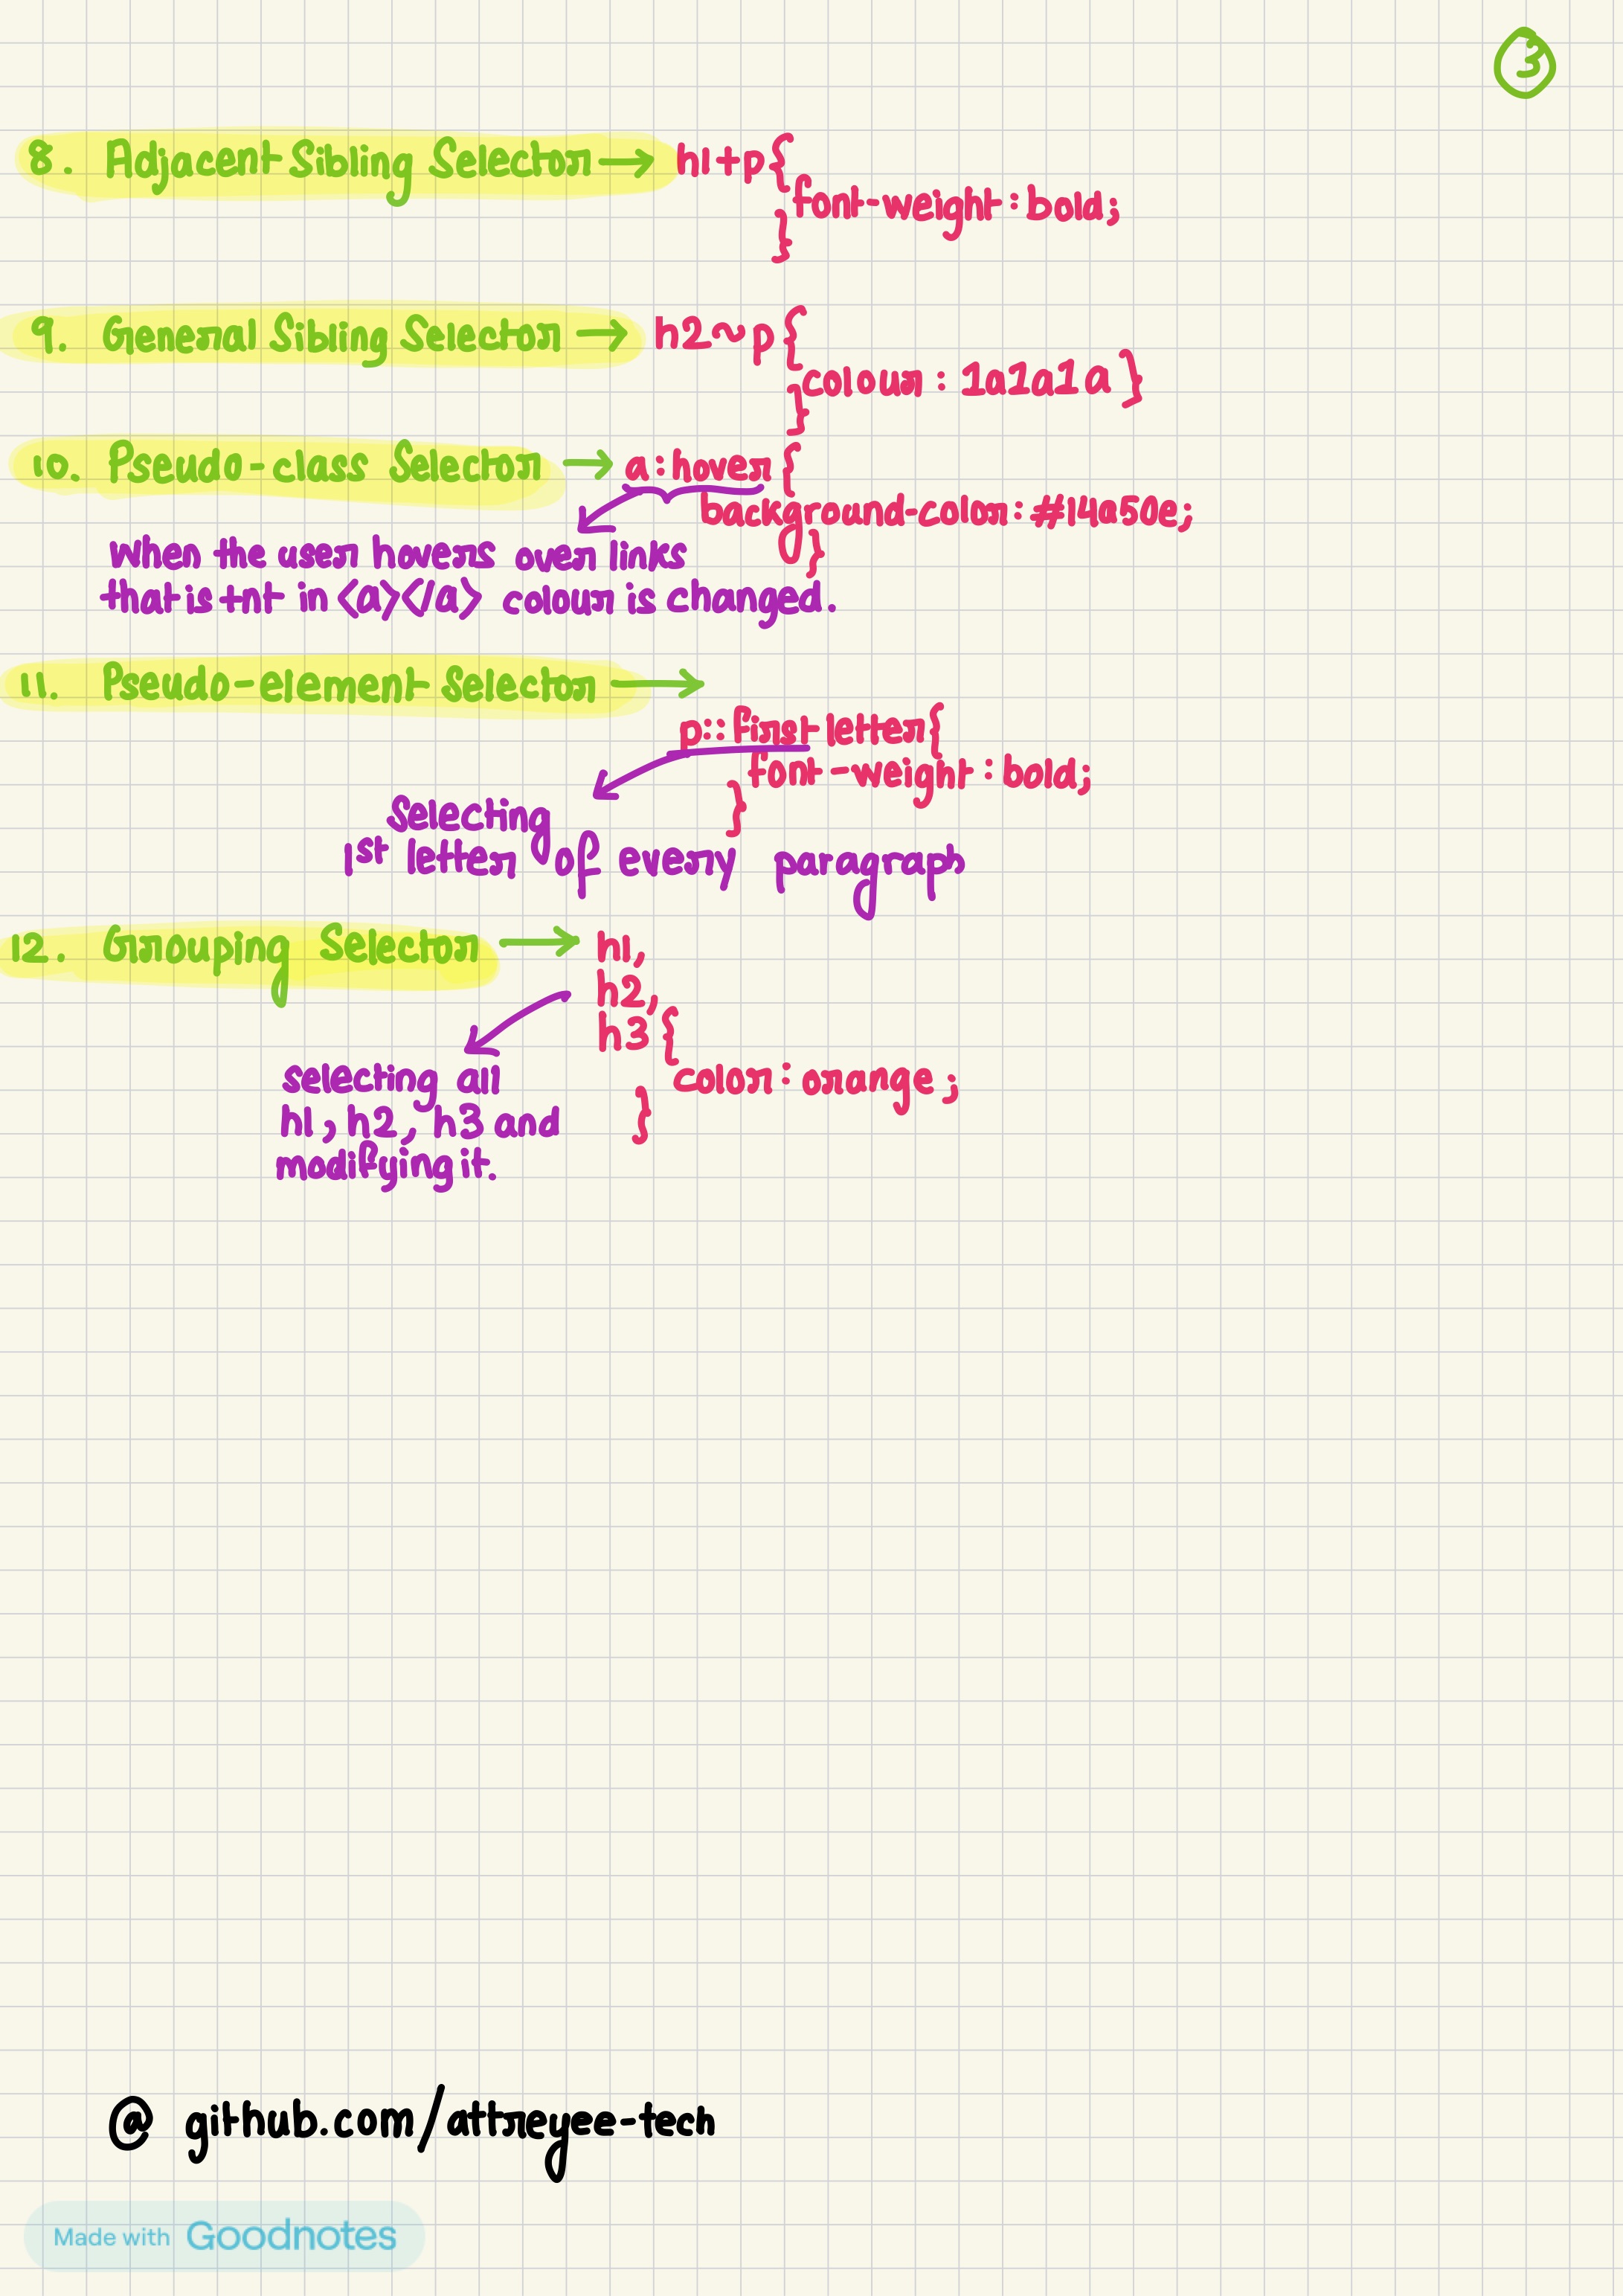 3
8. Adjacent Sibling Selector → h1+p{
font-weight: bold;
}
9. General Sibling Selector → h2~p{
colour: 1a1a1a }
}
10. Pseudo-class Selector → a:hover {
background-color: #14a50e;
}
When the user hovers over links
that is tnt in <a></a> colour is changed.
11. Pseudo-element Selector →
p::first letter{
font-weight: bold;
}
Selecting
1st letter of every paragraph
12. Grouping Selector → h1,
h2,
h3 {
color: orange ;
}
selecting all
h1, h2, h3 and
modifying it.
@ github.com/attreyee-tech
Made with Goodnotes